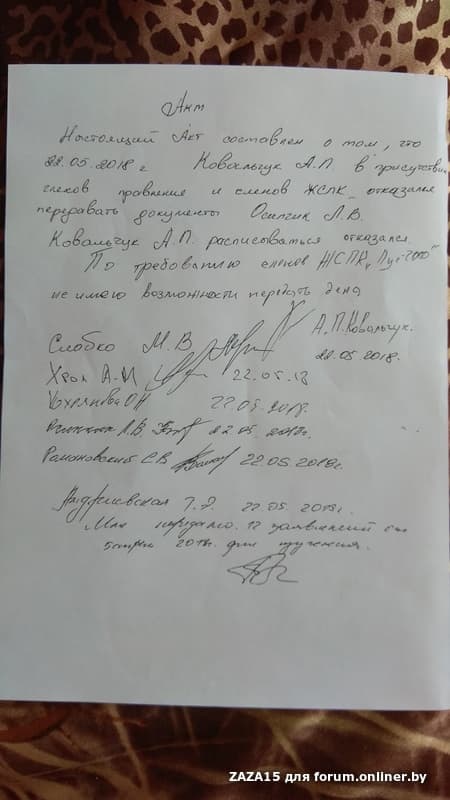 Акт
Настоящий Акт составлен о том, что
22.05.2018 г Ковальчук А.П. в присутствии
членов правления и членов ЖСПК отказался
передавать документы Осипчик Л.В.
Ковальчук А.П. расписоваться отказался.
По требованию членов ЖСПК
не имею возможности передать дела
А.П.Ковальчук.
Слобко М.В
22.05.2018.
А.И 22.05.18
ОН 22.05.2018.
Л.В. 22.05.2018г.
Романовский С.В 22.05 2018г.
22.05.2018г.
Мне передано 12 заявлений
2018г. для изучения.
ZAZA15 для forum.onliner.by